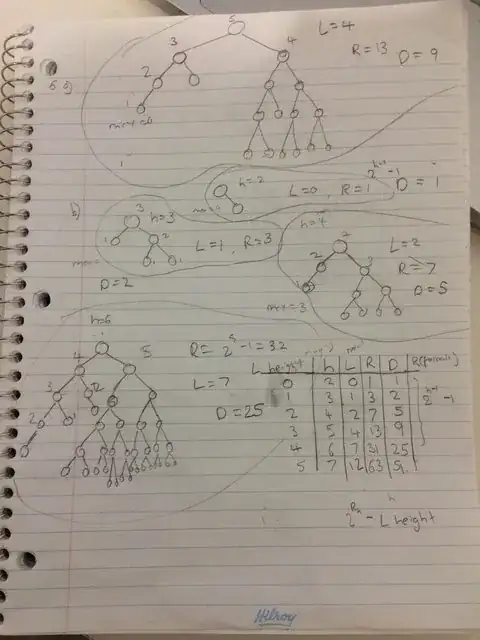 5
L=4
R=13 D=9
3
4
2
5 a)
1
h=2
L=0, R=1 D=1
2^(h-1) -1
b)
3
h=3
L=1, R=3
1 2
1 1
D=2
h=4
L=2
2 3
R=7
D=5
1
min=3
h=6
R= 2^5 -1=32
4 5
L=7
3 2
D=25
2
L height h L R D R(formula)
0 2 0 1 1
1 3 1 3 2 2^(h-1) -1
2 4 2 7 5
3 5 4 13 9
4 6 7 31 25
5 7 12 63 51
h
2^Rh - L height
Hilroy